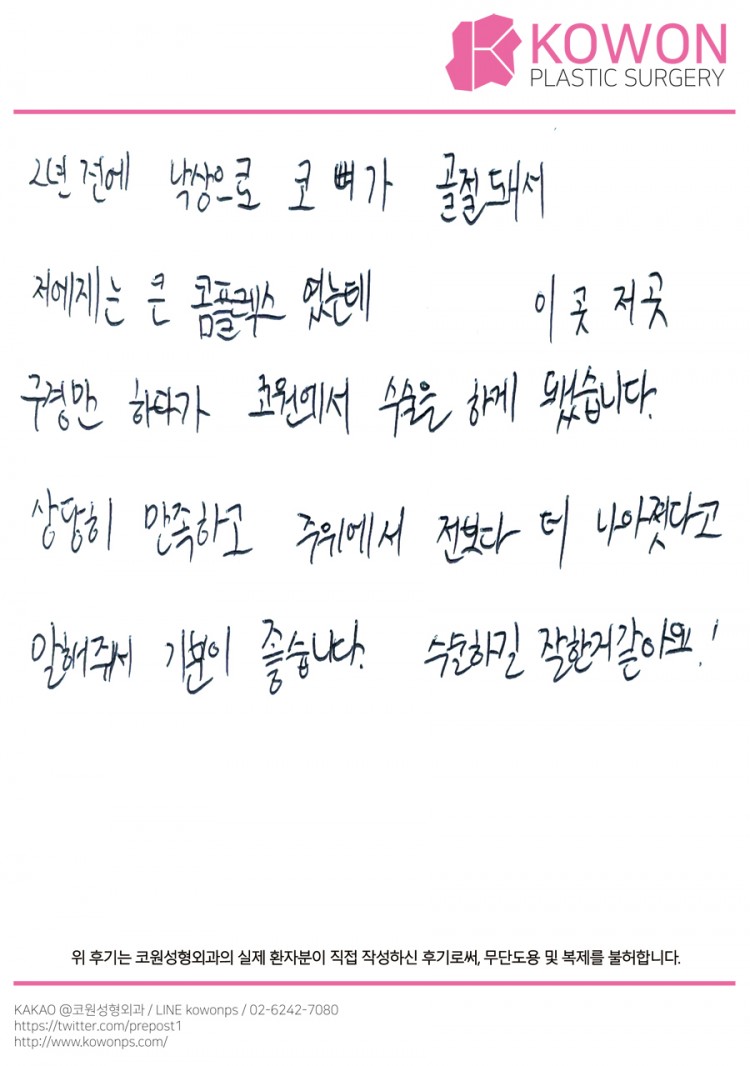 KOWON
PLASTIC SURGERY
2년 전에 낙상으로 코 뼈가 골절돼서
저에게는 큰 콤플렉스 였는데 이 곳 저곳
구경만 하다가 코원에서 수술을 하게 됐습니다.
상당히 만족하고 주위에서 전보다 더 나아졌다고
말해줘서 기분이 좋습니다. 수술하길 잘한거같아요!
위 후기는 코원성형외과의 실제 환자분이 직접 작성하신 후기로써, 무단도용 및 복제를 불허합니다.
KAKAO @코원성형외과 / LINE kowonps / 02-6242-7080
https://twitter.com/prepost1
http://www.kowonps.com/